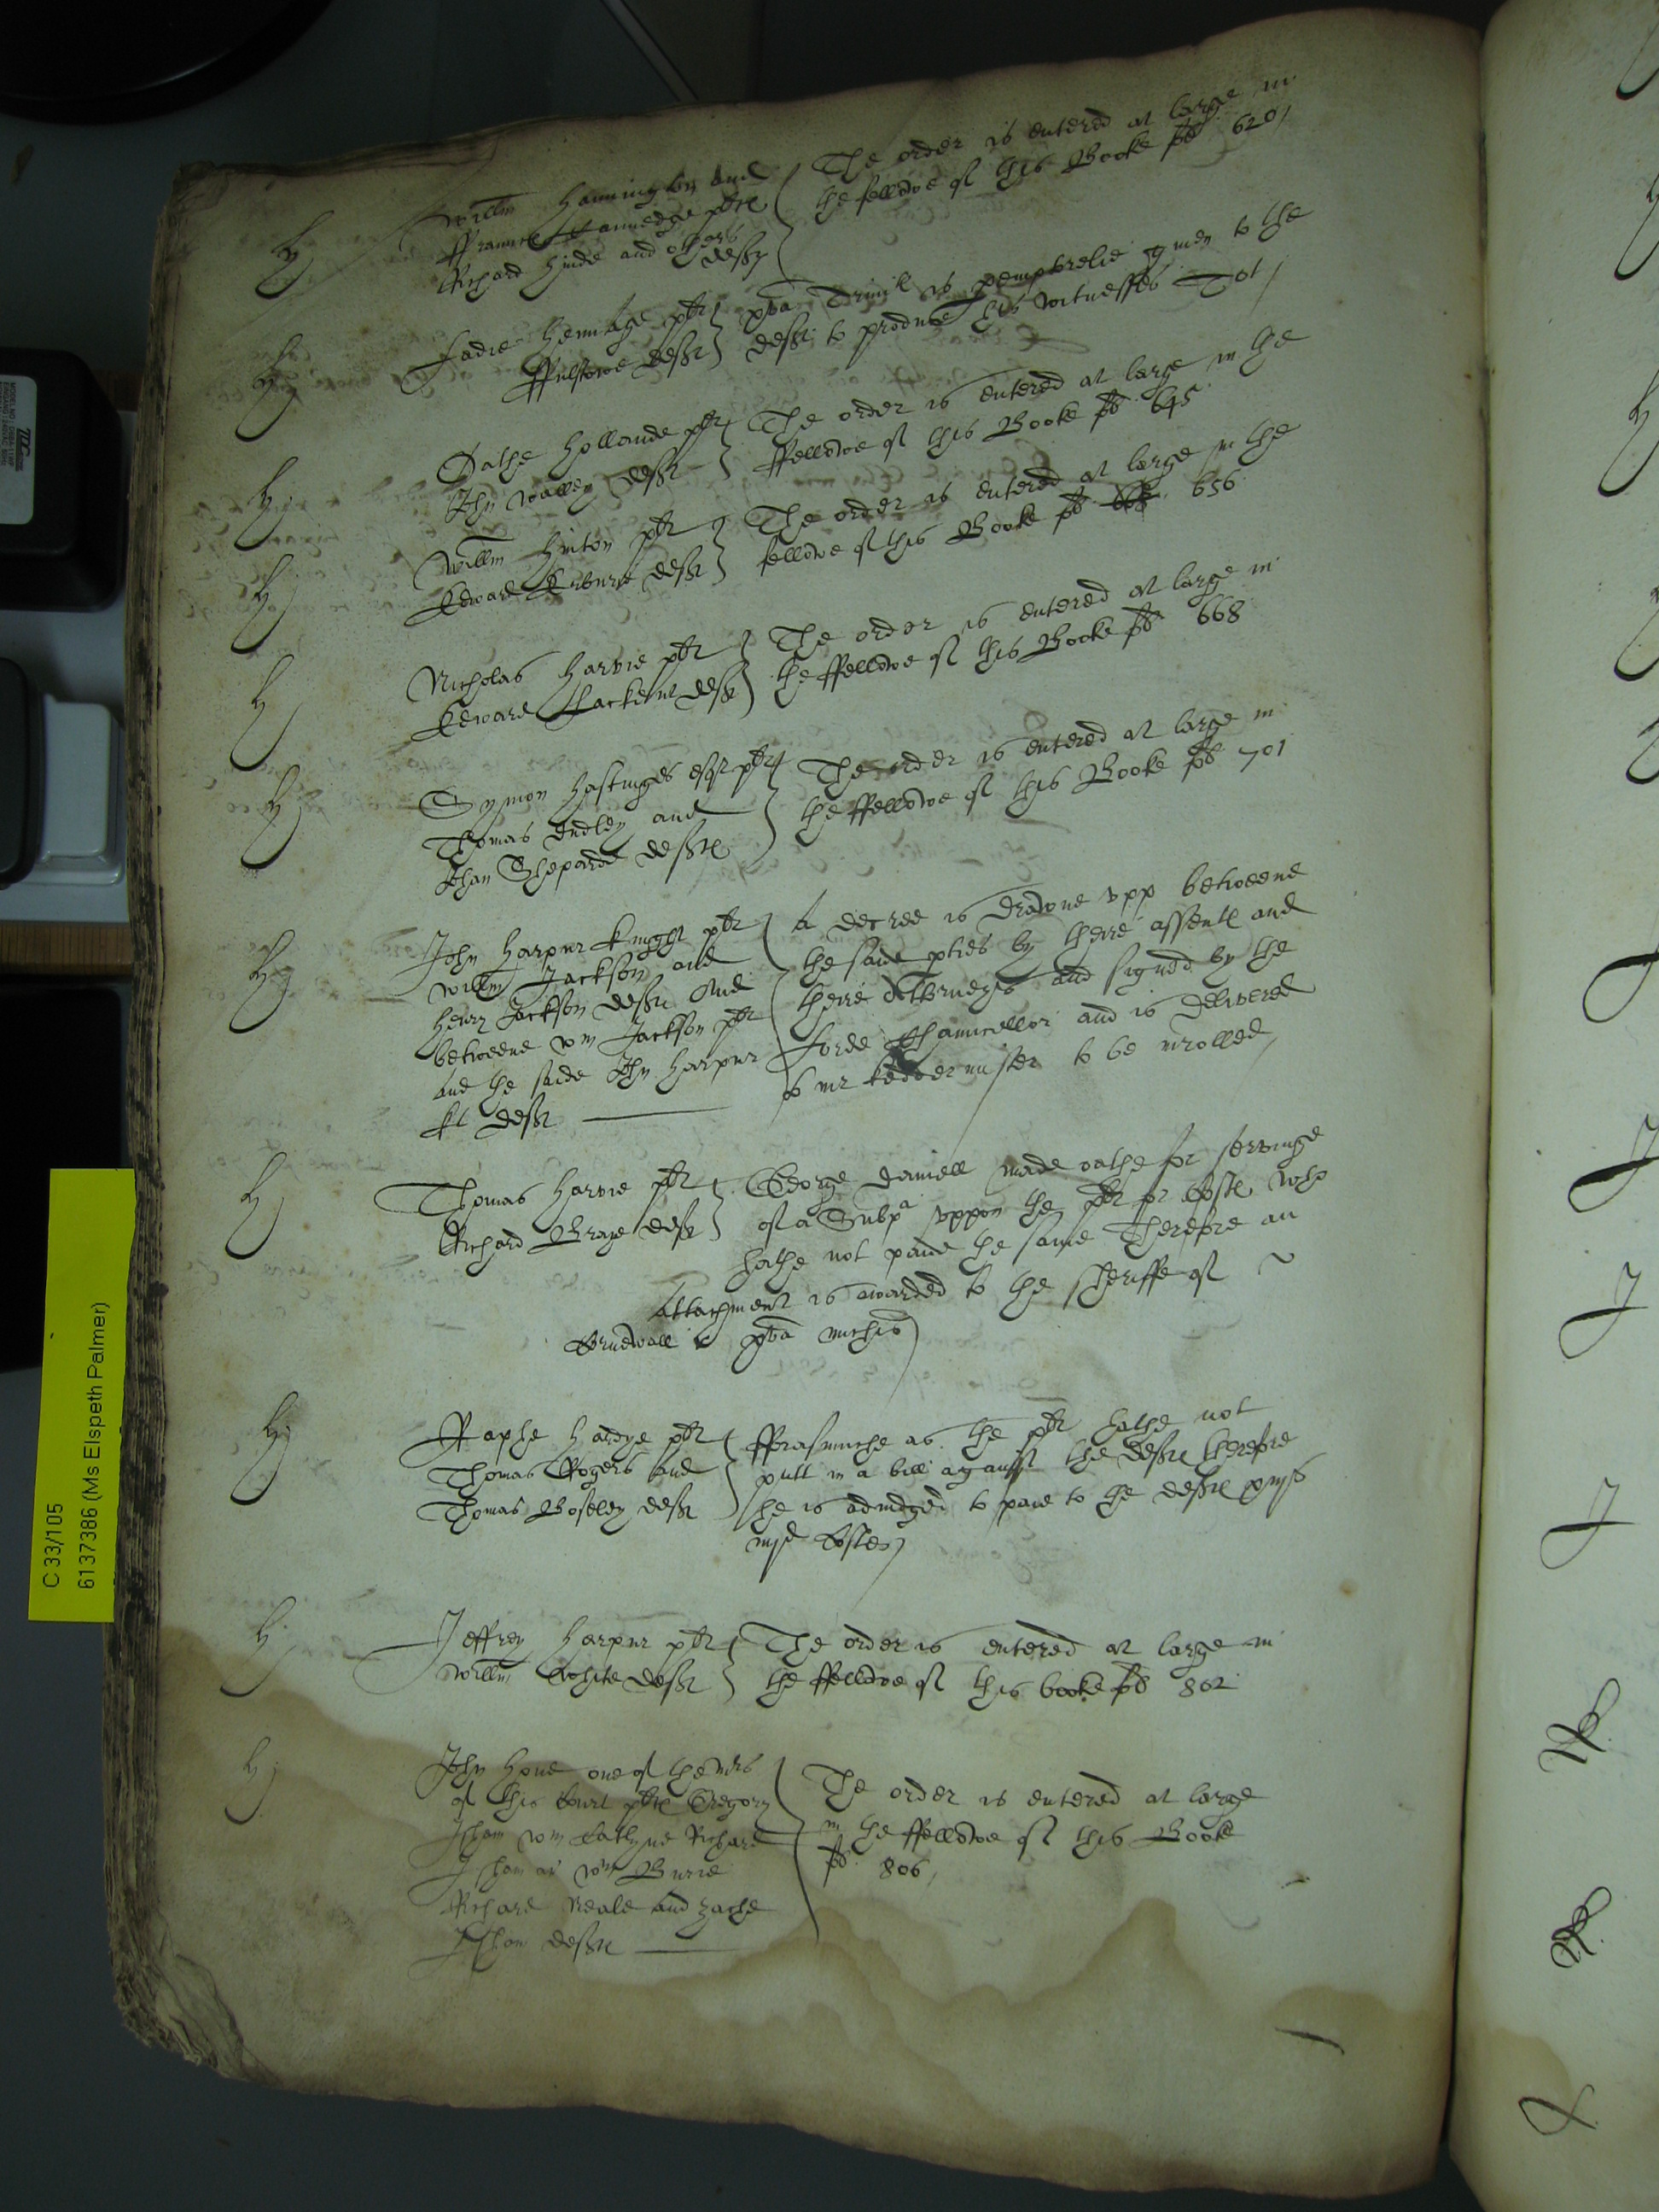 H
Willm Hannington and
Richard Hinde and others
defts
The order is entered at large in
the fellowe of this Booke fo 620
H
Ladie Hermitage plt
deft
is peremptorelie given to the
deft to produce his witnesses
H
Hollande plt
John Walley deft
The order is entered at large in the
ffellowe of this Booke fo 645
H
Willm Hinton plt
Edward deft
The order is entered at large in the
fellowe of this Booke fo 656
H
Nicholas Harvie plt
Edward Thackein deft
The order is entered at large in
the ffellowe of this Booke fo 668
H
Symon Hastinges esqr plt
Thomas Dudley and
Jhon Sheparde defts
The order is entered at large in
the ffellowe of this Booke fo 701
H
John Harpur knyght plt
Willm Jackson and
Henry Jackson defts And
betweene Wm Jackson plt
and the saide John Harpur
kt deft
A decree is drawne upp betweene
the said pties by theire assente and
theire Attorneys and signed by the
Lorde Chauncellor and is delivered
to mr Keddermister to be inrolled
H
Thomas Harvie plt
Richard Graye deft
George Daniell made oathe for servinge
of a Subpa uppon the plt for coste who
hathe not paied the same Therefore an
Attachment is awarded to the Sheriffe of
Cornewall michis
H
Raphe plt
Thomas Rogers and
Thomas Bosley defts
fforasmuche as the plt hathe not
putt in a bill against the defts therefore
he is adiudged to paie to the defts
costes
H
Jeffrey Harpur plt
Willm White deft
The order is entered at large in
the ffellowe of this booke fo 802
H
John Hone one of the mrs
of this Court plt Gregory
Isham Wm Catlyne Richard
Isham ar Wm Burie
Richard Neale and Zache
Isham defts
The order is entered at large
in the ffellowe of this Booke
fo 806
C 33/105
6137386 (Ms Elspeth Palmer)